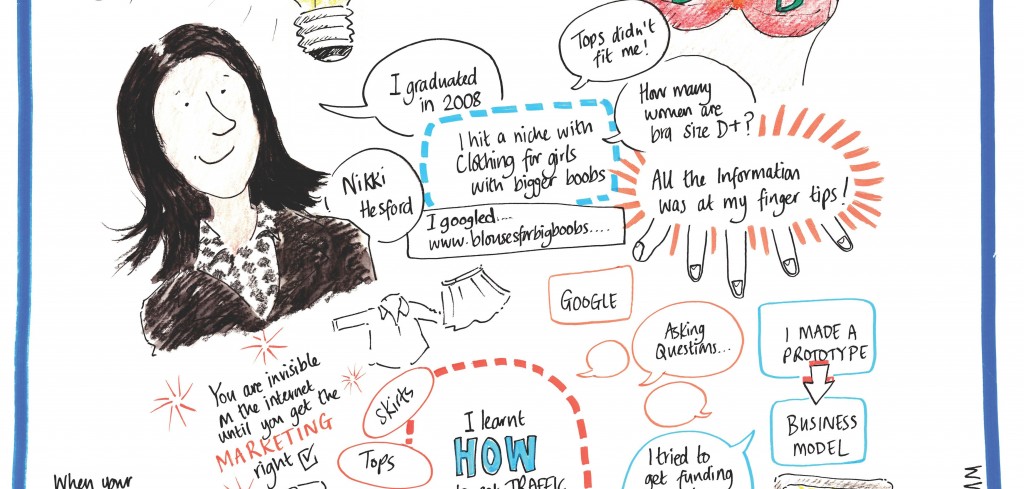 D
Tops didn't
fit me!
I graduated
in 2008
How many
women are
bra size D+?
I hit a niche with
Clothing for girls
with bigger boobs
All the Information
was at my finger tips!
Nikki
Hesford
I googled....
www.blousesforbigboobs....
GOOGLE
Asking
Questions...
I MADE A
PROTOTYPE
BUSINESS
MODEL
You are invisible
on the internet
until you get the
MARKETING
right
Skirts
Tops
I learnt
HOW
TRAFFIC
I tried to
get funding
When your